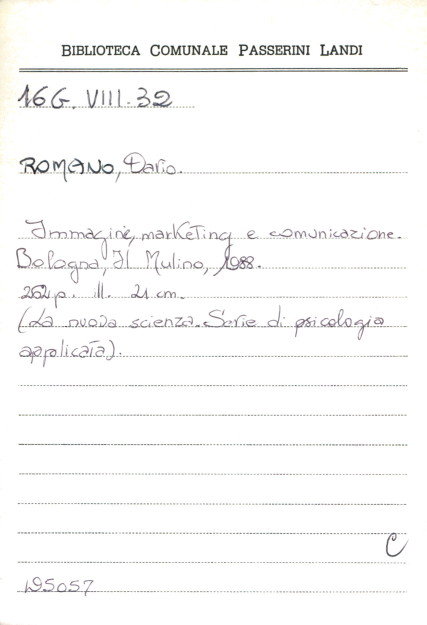 BIBLIOTECA COMUNALE PASSERINI LANDI
16G. VIII. 32
ROMANO, Dario.
Immagine, marketing e comunicazione.
Bologna, Il Mulino, 1988.
262 p. ill. 21 cm.
(La nuova scienza. Serie di psicologia
applicata).
C
195057